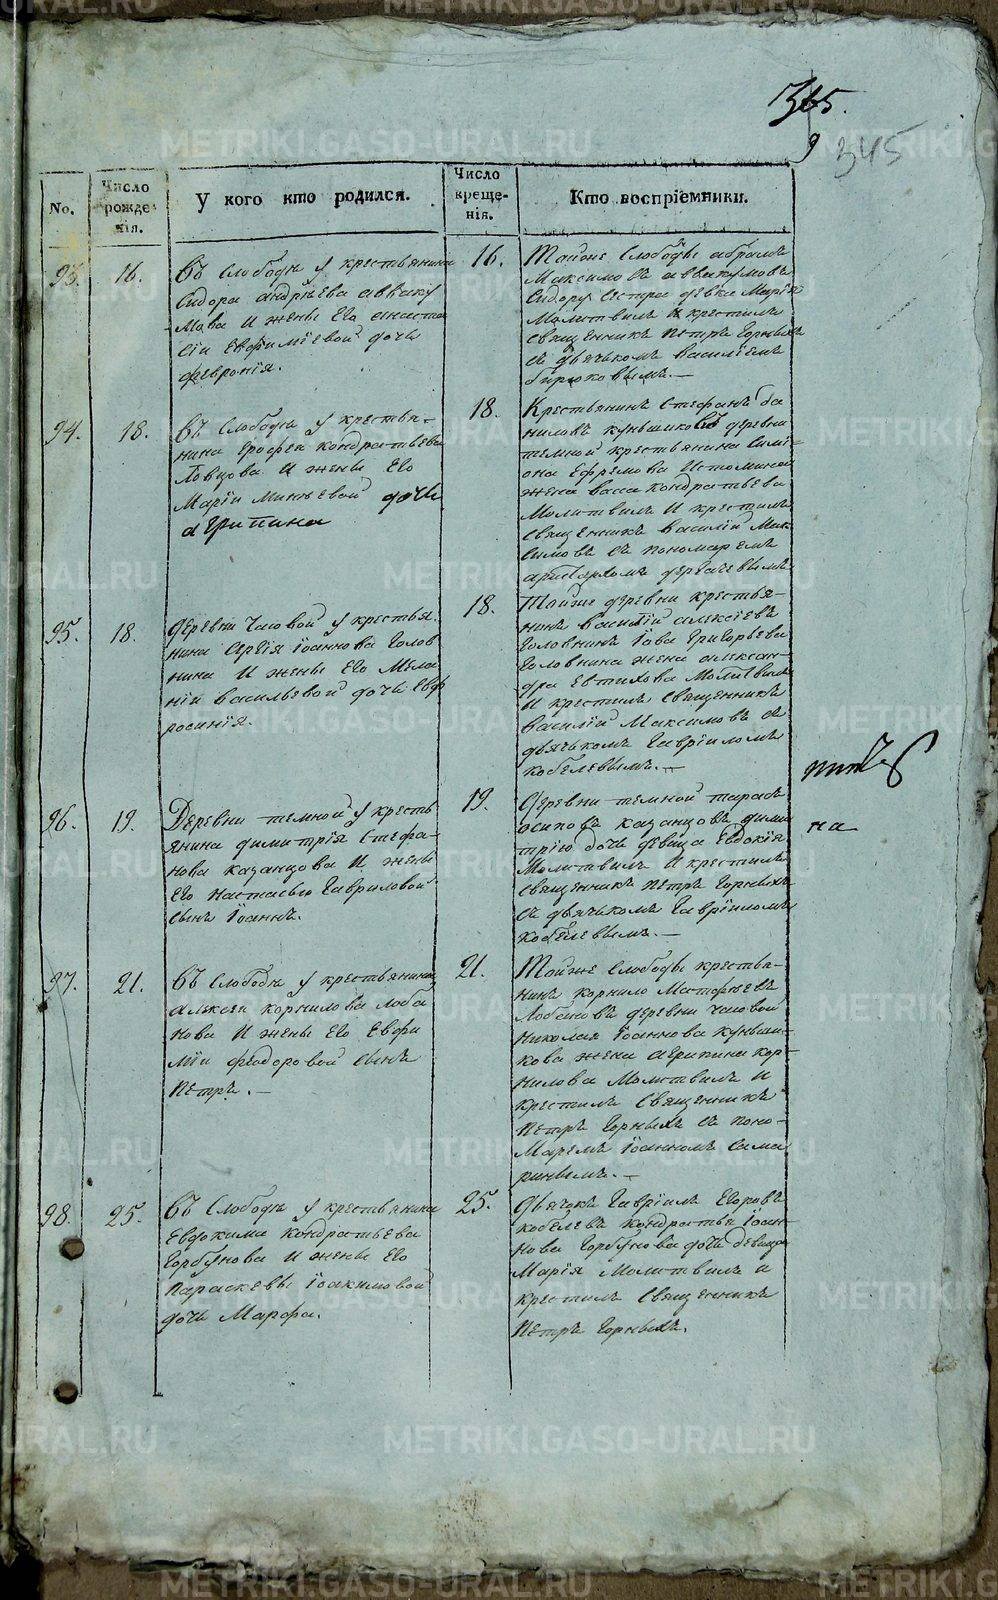 365.
9 345
No.
Число рожденія.
У кого кто родился.
Число крещенія.
Кто воспріемники.
93.
16.
Въ слободѣ у крестьянина
Сидора Андрѣева Авваку
мова и жены его Анаста
сіи Евфиміевой дочь
Февронія.
16.
Тойже слободы Абрамъ
Максимовъ Аввакумовъ
Сидору сестра девка Марія
Молитвилъ и крестилъ
священникъ Петръ Горныхъ
съ дьячькомъ Василіемъ
Бирюковымъ.
94.
18.
Въ слободѣ у крестья-
нина Ерофея Кондратьева
Ловцова и жены его
Маріи Минѣевой дочь
Агрипина
18.
Крестьянинъ Стефанъ Да
ниловъ Куньшиковъ деревни
темной крестьянина Симе-
она Ефремова Истомина
жена Васса Кондратьева
Молитвилъ и крестилъ
священникъ Василій Мак
симовъ съ пономаремъ
Аристархомъ
95.
18.
Деревни Часовой у крестья
нина Сергія Іоаннова Голов
нина и жены его Мела
ніи Васильевой дочь Евф
росинія.
18.
Тойже деревни крестья-
нинъ Василій Алексіевъ
Головнинъ Іова Григорьева
Головнина жена Алексан-
дра Евтихова Молитвилъ
и крестилъ священникъ
Василій Максимовъ съ
дьячькомъ Гавріиломъ
Кобелевымъ.
96.
19.
Деревни темной у кресть
янина Димитрія Стефа-
нова Казанцова и жены
его Настасьи Гавриловой
сынъ Іоаннъ.
19.
Деревни темной Тарасъ
Осиповъ Казанцовъ Дими
трію дочь девица Евдокія
Молитвилъ и крестилъ
священникъ Петръ Горныхъ
съ дьячькомъ Гавріиломъ
Кобелевымъ.
на
97.
21.
Въ слободѣ у крестьянина
Алексѣя Корнилова Лоба
нова и жены его Евфи
міи Феодоровой сынъ
Петръ.
21.
Тойже слободы крестья-
нинъ Корнило Матфѣевъ
Лобановъ деревни Часовой
Николая Іоаннова Куньши-
кова жена Агрипина Кор-
нилова Молитвилъ и
крестилъ священникъ
Петръ Горныхъ съ поно-
маремъ Іоанномъ Сама
ринымъ.
98.
25.
Въ слободѣ у крестьянина
Евдокима Кондратьева
Горбунова и жены его
Параскевы Іоакимовой
дочь Марфа.
25.
Дьячокъ Гавріилъ Егоровъ
Кобелевъ Кондратья Іоан-
нова Горбунова дочь девица
Марія Молитвилъ и
крестилъ священникъ
Петръ Горныхъ.
METRIKI.GASO-URAL.RU